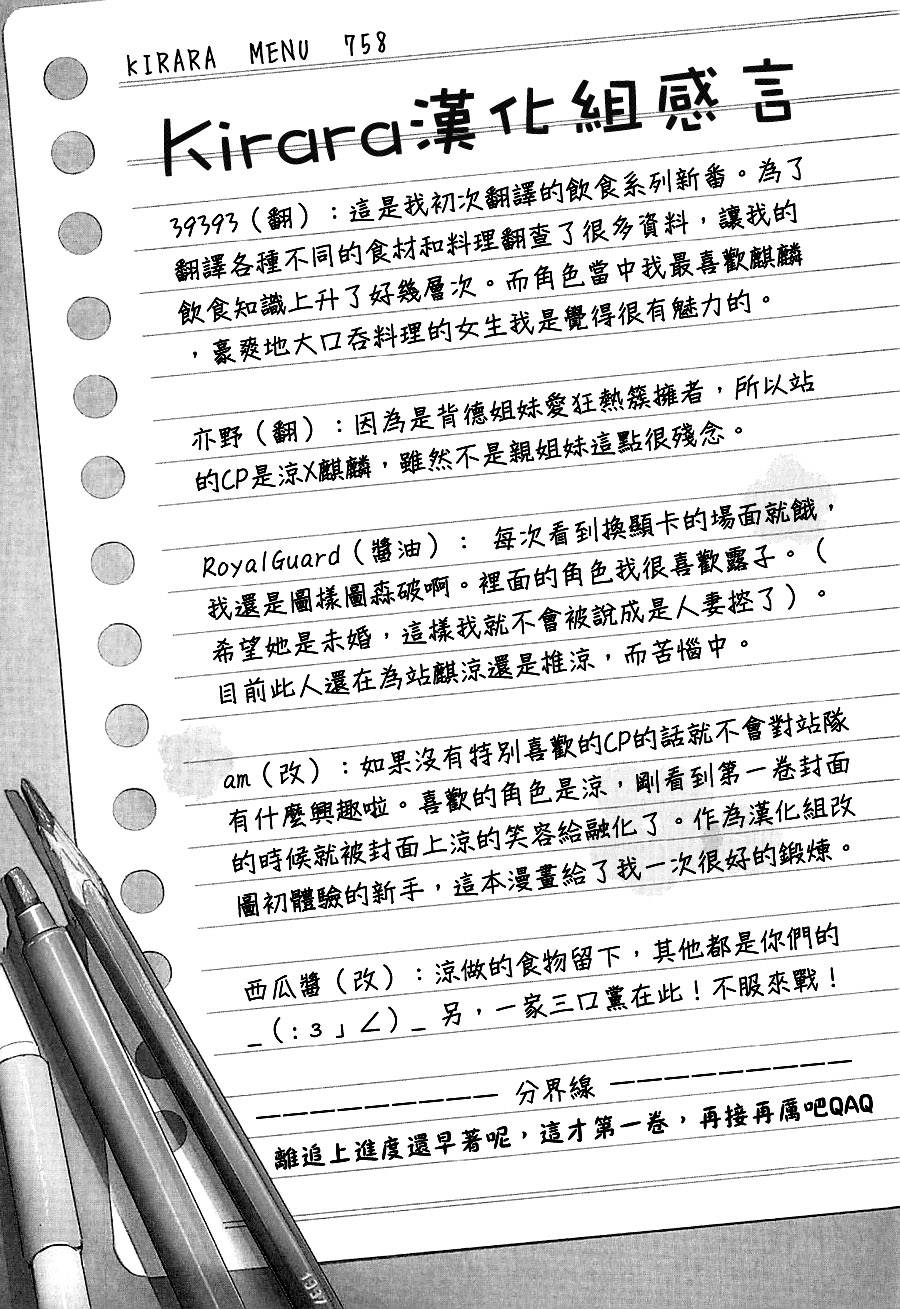 KIRARA MENU 758
Kirara漢化組感言
39393（翻）：這是我初次翻譯的飲食系列新番。為了
翻譯各種不同的食材和料理翻查了很多資料，讓我的
飲食知識上升了好幾層次。而角色當中我最喜歡麒麟
，豪爽地大口吞料理的女生我是覺得很有魅力的。
亦野（翻）：因為是背德姐妹愛狂熱簇擁者，所以站
的CP是涼X麒麟，雖然不是親姐妹這點很殘念。
RoyalGuard（醬油）： 每次看到換顯卡的場面就餓，
我還是圖樣圖森破啊。裡面的角色我很喜歡露子。（
希望她是未婚，這樣我就不會被說成是人妻控了）。
目前此人還在為站麒涼還是椎涼，而苦惱中。
am（改）：如果沒有特別喜歡的CP的話就不會對站隊
有什麼興趣啦。喜歡的角色是涼，剛看到第一卷封面
的時候就被封面上涼的笑容給融化了。作為漢化組改
圖初體驗的新手，這本漫畫給了我一次很好的鍛煉。
西瓜醬（改）：涼做的食物留下，其他都是你們的
_（：з」∠）_ 另，一家三口黨在此！不服來戰！
————————— 分界線 —————————
離追上進度還早著呢，這才第一卷，再接再厲吧QAQ
1937